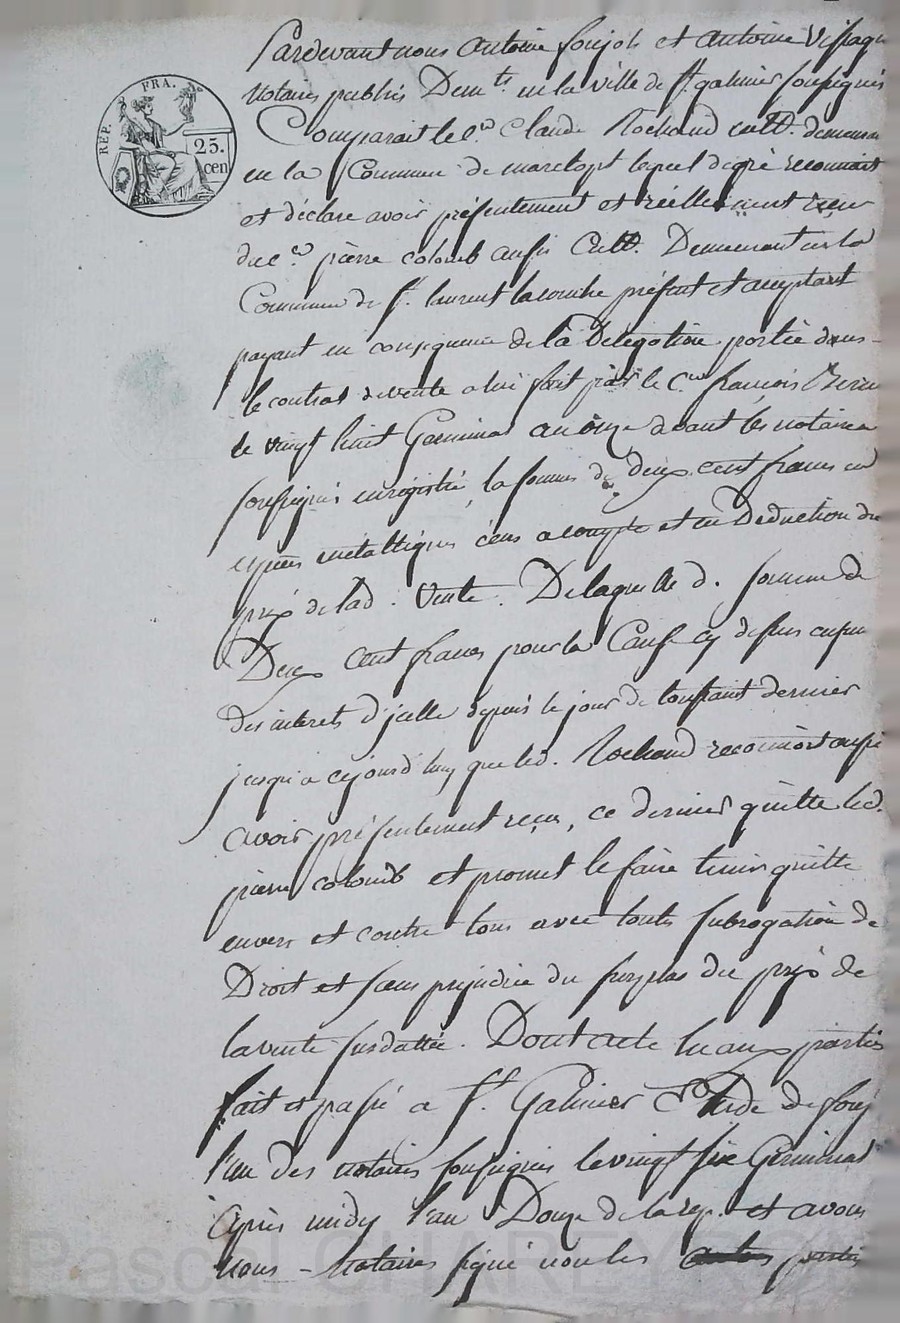 REP. FRA.
25.
cen
Pardevant nous antoine foujols et antoine Vissagu
Notaires publics Dem.ts en la ville de st. galmier soussignés
Comparait le c.en Claude Rochand cult. demeurant
en la Commune de marclopt lequel de gré reconnait
et déclare avoir présentement et réellement reçu
du c.en pierre colomb aussi Cult. Demeurant en la
Commune de st. laurent laconche présent et acceptant
payant en consequence de la Délégation portée dans
le contrat de vente a lui fait par le C.en françois
le vingt huit Germinal an onze devant les notaires
soussignés enregistré, la somme de deux cent francs en
espèces métalliques cens acompte et en Déduction du
prix de lad. Vente. De laquelle d. somme de
Deux Cent francs pour la Cause cy dessus ensem
des interets d'jcelle depuis le jour de toussaint dernier
jusqu'a cejourd'huy que led. Rochand reconnoit aussi
avoir présentement reçu, ce dernier quitte led.
pierre colomb et promet le faire tenir quitte
envers et contre tous avec toute subrogation de
Droit et sans prejudice du surplus du prix de
la vente susdattée. Dont acte lu aux parties
fait et passé a st. Galmier Etude de fouj
l'un des notaires soussignés le vingt six Germinal
après midy l'an Douze de la rep. et avons
Nous - Notaires signé non les parties
Pascal CHAREYRON